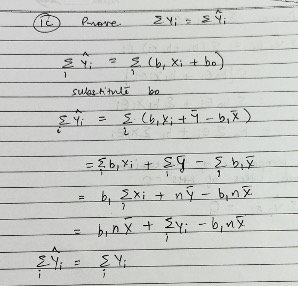 1c Prove Σyi = Σŷi
Σi ŷi = Σi (b1 xi + b0)
substitute b0
Σi ŷi = Σi (b1 xi + ȳ - b1 x̄)
= Σi b1 xi + Σi ȳ - Σi b1 x̄
= b1 Σi xi + nȳ - b1 n x̄
= b1 n x̄ + Σi yi - b1 n x̄
Σi ŷi = Σi yi